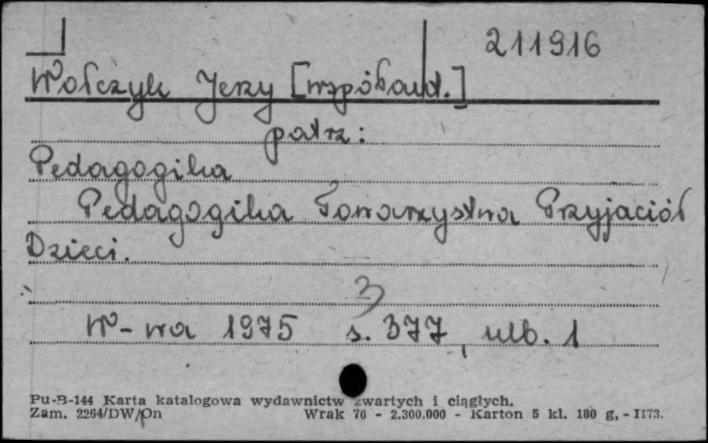 211916
Wołczyk Jerzy [współaut.]
patrz:
Pedagogika
Pedagogika Towarzystwa Przyjaciół
Dzieci.
3
W-wa 1975 s. 377, ulb. 1
Pu-B-144 Karta katalogowa wydawnictw zwartych i ciągłych.
Zam. 2264/DW/Dn Wrak 76 - 2.300.000 - Karton 5 kl. 180 g, - II73.